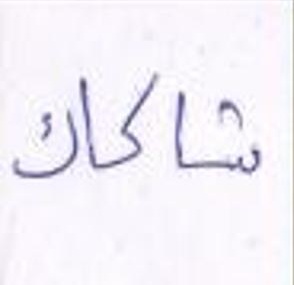 شاكاك